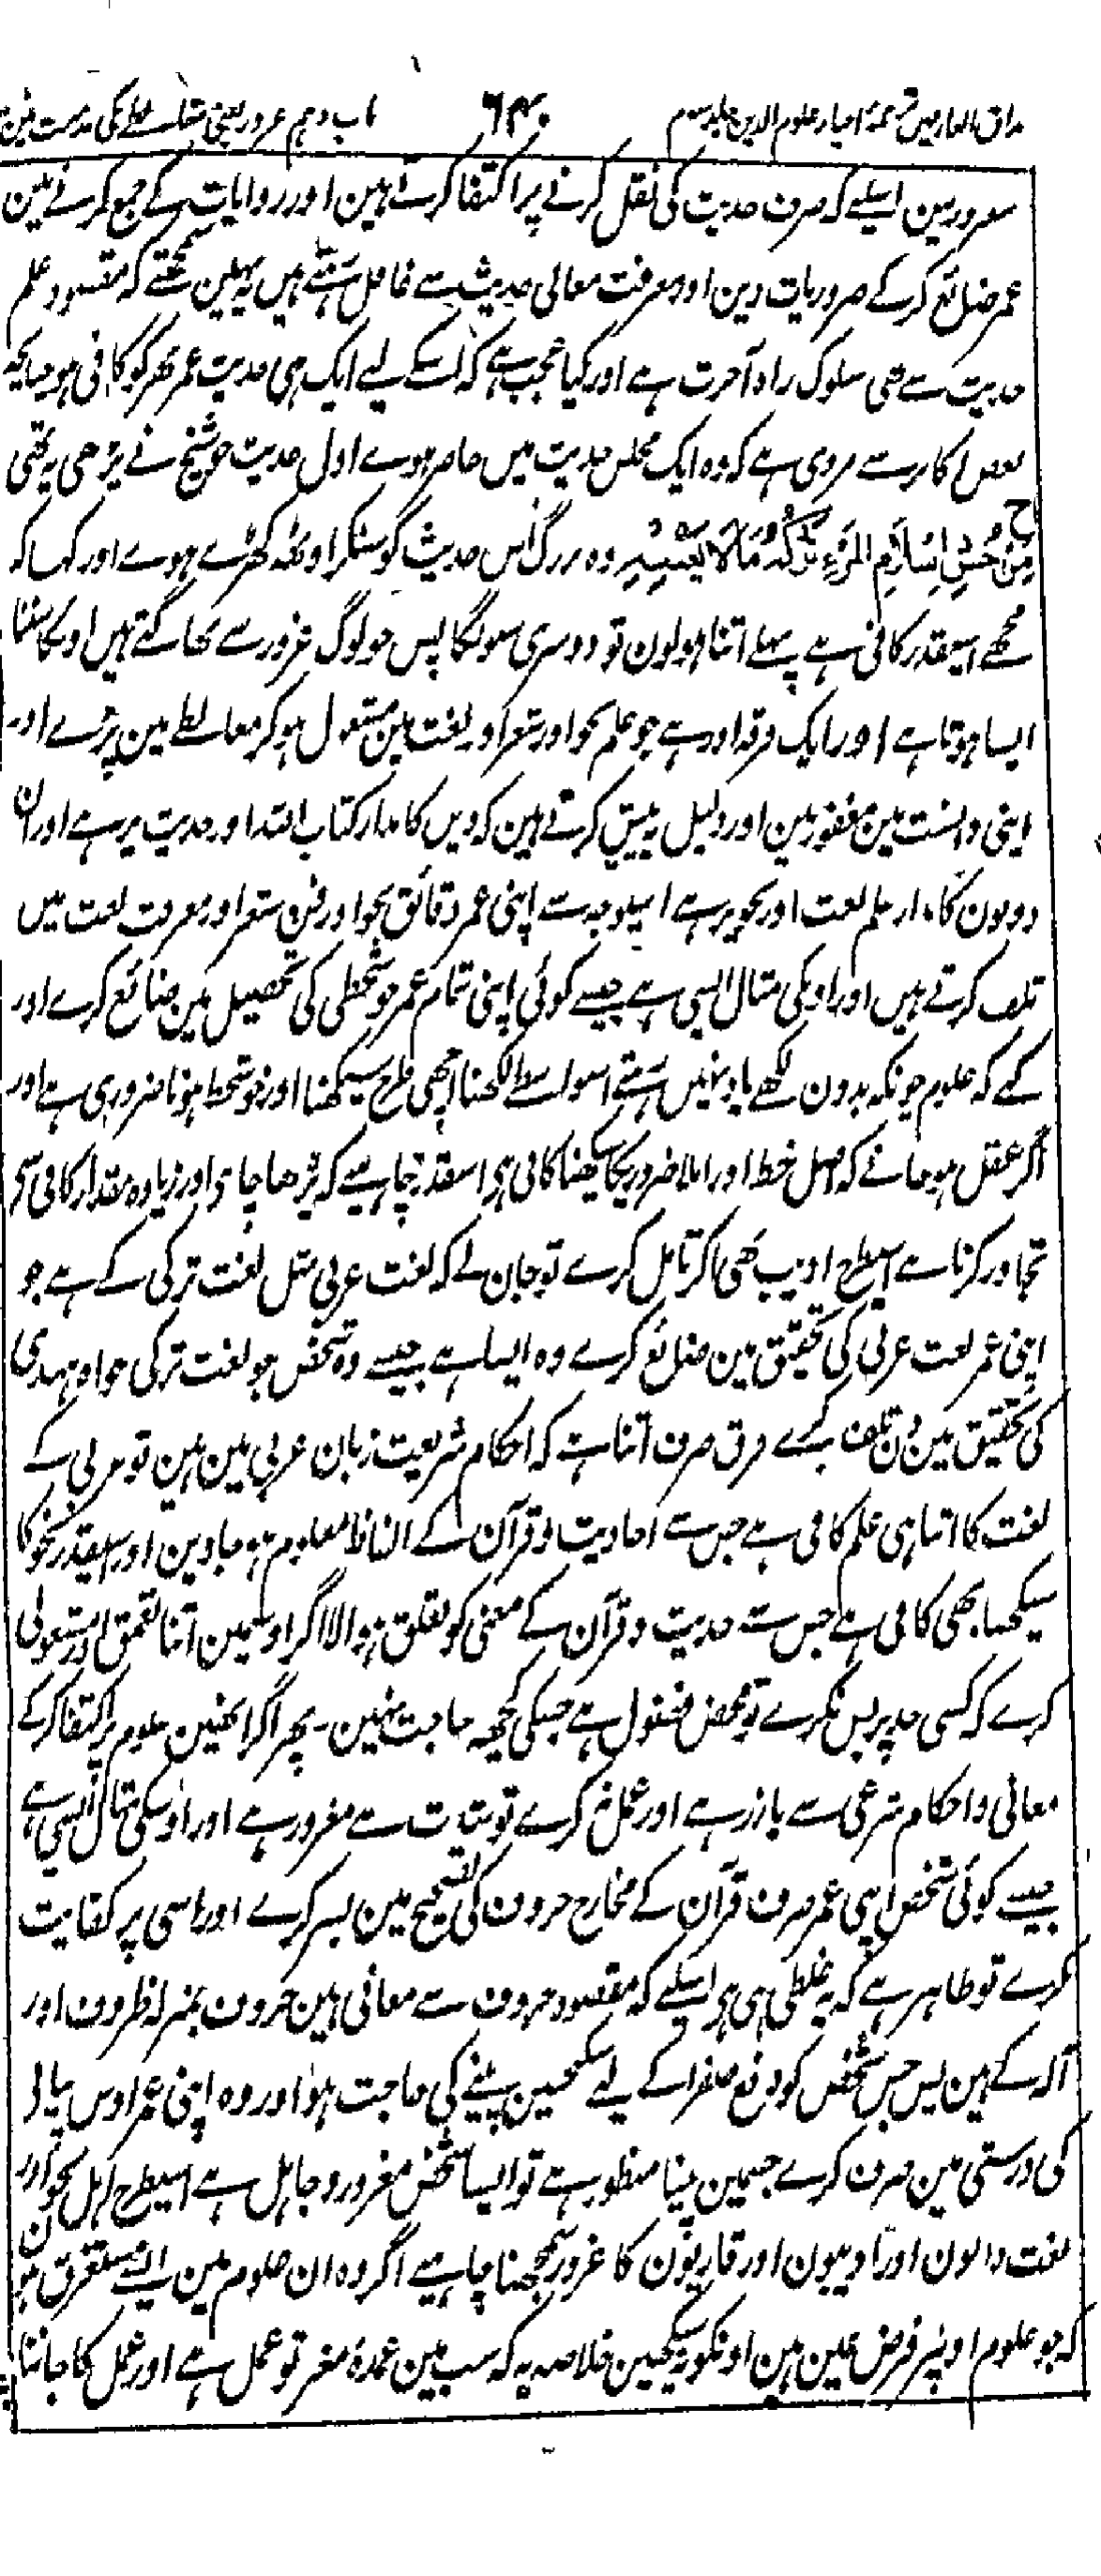 مذاق العارفین ترجمہ احیاء علوم الدین جلد سوم ۶۴۰ باب دہم غرور یعنی مغالطے کی مذمت میں
مغرور ہین اسلیے کہ صرف حدیث کی نقل کرنے پر اکتفا کرتے ہین اور روایات کے جمع کرنے مین
عمر ضائع کرکے ضروریات دین اور معرفت معانی حدیث سے غافل رہتے ہیں یہ نہین سمجھتے کہ مقصود علم
حدیث سے بھی سلوک راہ آخرت ہے اور کیا عجب ہے کہ اسکے لیے ایک ہی حدیث عمر بھر کو کافی ہو چنانچہ
بعض اکابر سے مروی ہے کہ وہ ایک مجلس حدیث میں حاضر ہوے اول حدیث جو شیخ نے پڑھی یہ تھی
مِنْ حُسْنِ اِسْلَامِ الْمَرْءِ تَرْكُهُ مَالَا يَعْنِيْهِ وہ بزرگ اس حدیث کو سنکر اوٹھہ کھڑے ہوے اور کہا کہ
مجھے اسیقدر کافی ہے پہلے اتنا ہولون تو دوسری سنونگا پس جو لوگ غرور سے بھاگتے ہیں اونکا سننا
ایسا ہوتا ہے اور ایک فرقہ اور ہے جو علم نحو اور شعر اور لغت مین مشغول ہوکر مغالطے مین پڑے اور
اپنی دانست مین مغفور ہین اور دلیل یہ پیش کرتے ہین کہ دین کا مدار کتاب اللہ اور حدیث پر ہے اور ان
دونون کا مدار علم لغت اور نحو پر ہے اسیوجہ سے اپنی عمر دقائق نحو اور فن شعر اور معرفت لغت میں
تلف کرتے ہیں اور اونکی مثال ایسی ہے جیسے کوئی اپنی تمام عمر خوشخطی کی تحصیل مین ضائع کرے اور
کہے کہ علوم چونکہ بدون لکھے یاد نہیں رہتے اسواسطے لکھنا اچھی طرح سیکھنا اور خوشخط ہونا ضروری ہے اور
اگر عقل ہو جانے کہ اصل خط اور املا ضروری کا سیکھنا کافی ہی اسقدر چاہیے کہ پڑھا جاے اور زیادہ مقدار کافی سے
تجاوز کرنا ہے اسیطرح ادیب بھی اگر تامل کرے تو جان لے کہ لغت عربی مثل لغت ترکی کے ہے جو
اپنی عمر لغت عربی کی تحقیق مین ضائع کرے وہ ایسا ہے جیسے وہ شخص جو لغت ترکی خواہ ہندی
کی تحقیق مین تلف کرے فرق صرف اتنا ہے کہ احکام شریعت زبان عربی مین ہین تو عربی کے
لغت کا اتنا ہی علم کافی ہے جس سے احادیث و قرآن کے الفاظ معلوم ہو جاوین اور اسیقدر نحو کا
سیکھنا بھی کافی ہے جس سے حدیث و قرآن کے معنی کو تعلق ہو والا اگر اوسمین اتنا تعمق اور مشغولی
کرے کہ کسی حد پر بس نکرے تو محض فضول ہے جسکی کچھہ حاجت نہین۔ پھر اگر انھین علوم پر اکتفا کرکے
معانی و احکام شرعی سے باز رہے اور عمل نہ کرے تو شدت سے مغرور ہے اور اوسکی مثال ایسی ہے
جیسے کوئی شخص اپنی عمر صرف قرآن کے مخارج حروف کی تصحیح مین بسر کرے اور اسی پر کفایت
کرے تو ظاہر ہے کہ یہ غلطی ہی ہے اسلیے کہ مقصود حروف سے معانی ہین حروف بمنزلہ ظروف اور
آلہ کے ہین پس جس شخص کو دفع صفرا کے لیے سکنجبین پینے کی حاجت ہو اور وہ اپنی عمر اوس پیالی
کی درستی مین صرف کرے جسمین پینا منظور ہے تو ایسا شخص مغرور و جاہل ہے اسیطرح اہل نحو اور
لغت دانون اور ادیبون اور قاریون کا غرور سمجھنا چاہیے اگر وہ ان علوم مین ایسے مستغرق ہون
کہ جو علوم اونپر فرض عین ہین اونکو نہ سیکھین خلاصہ یہ کہ سب مین عمدہ مغز تو عمل ہے اور عمل کا جاننا